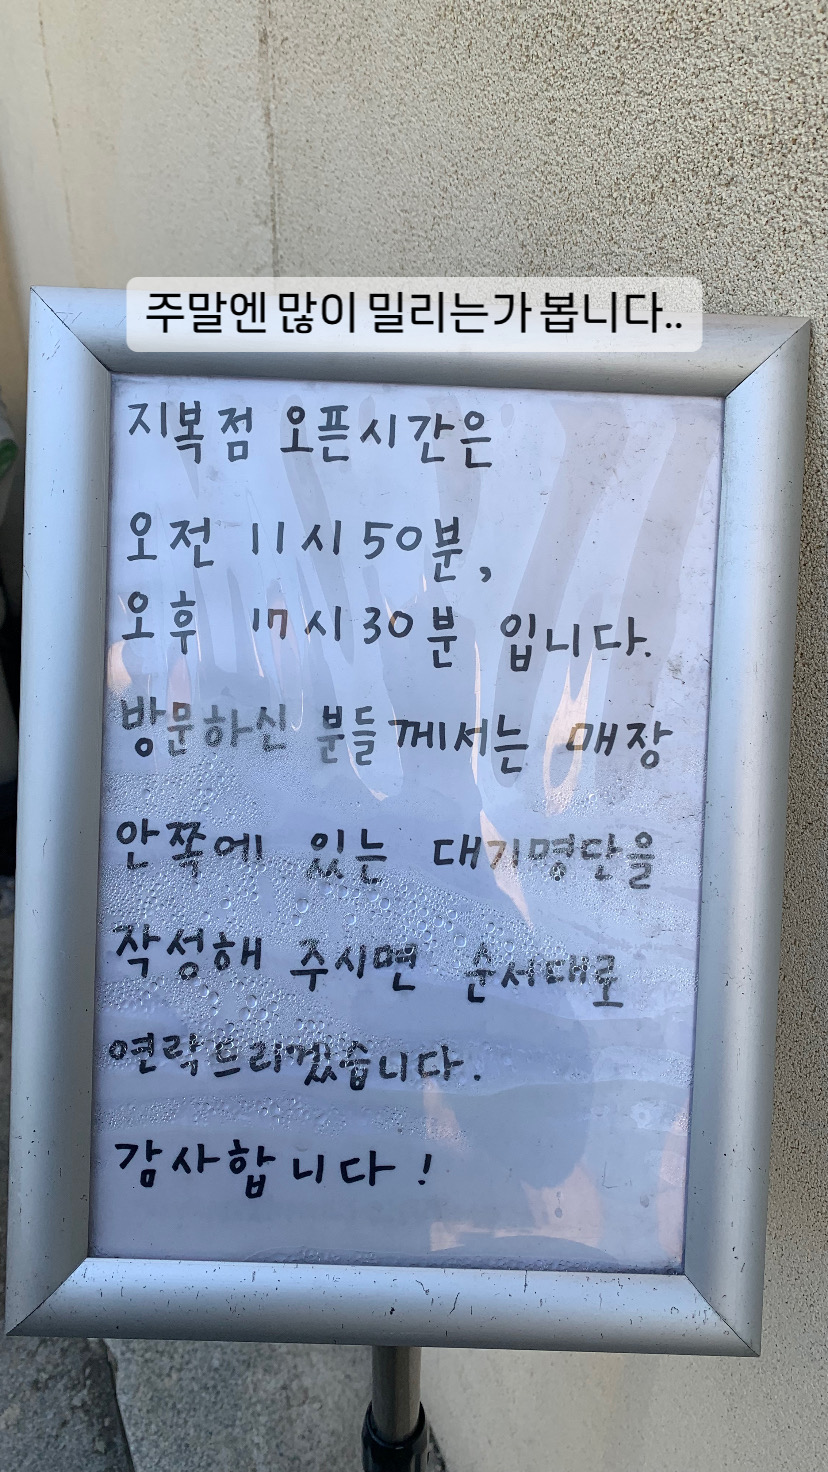 주말엔 많이 밀리는가 봅니다..
지복점 오픈시간은
오전 11시 50분,
오후 17시 30분 입니다.
방문하신 분들께서는 매장
안쪽에 있는 대기명단을
작성해 주시면 순서대로
연락드리겠습니다.
감사합니다!